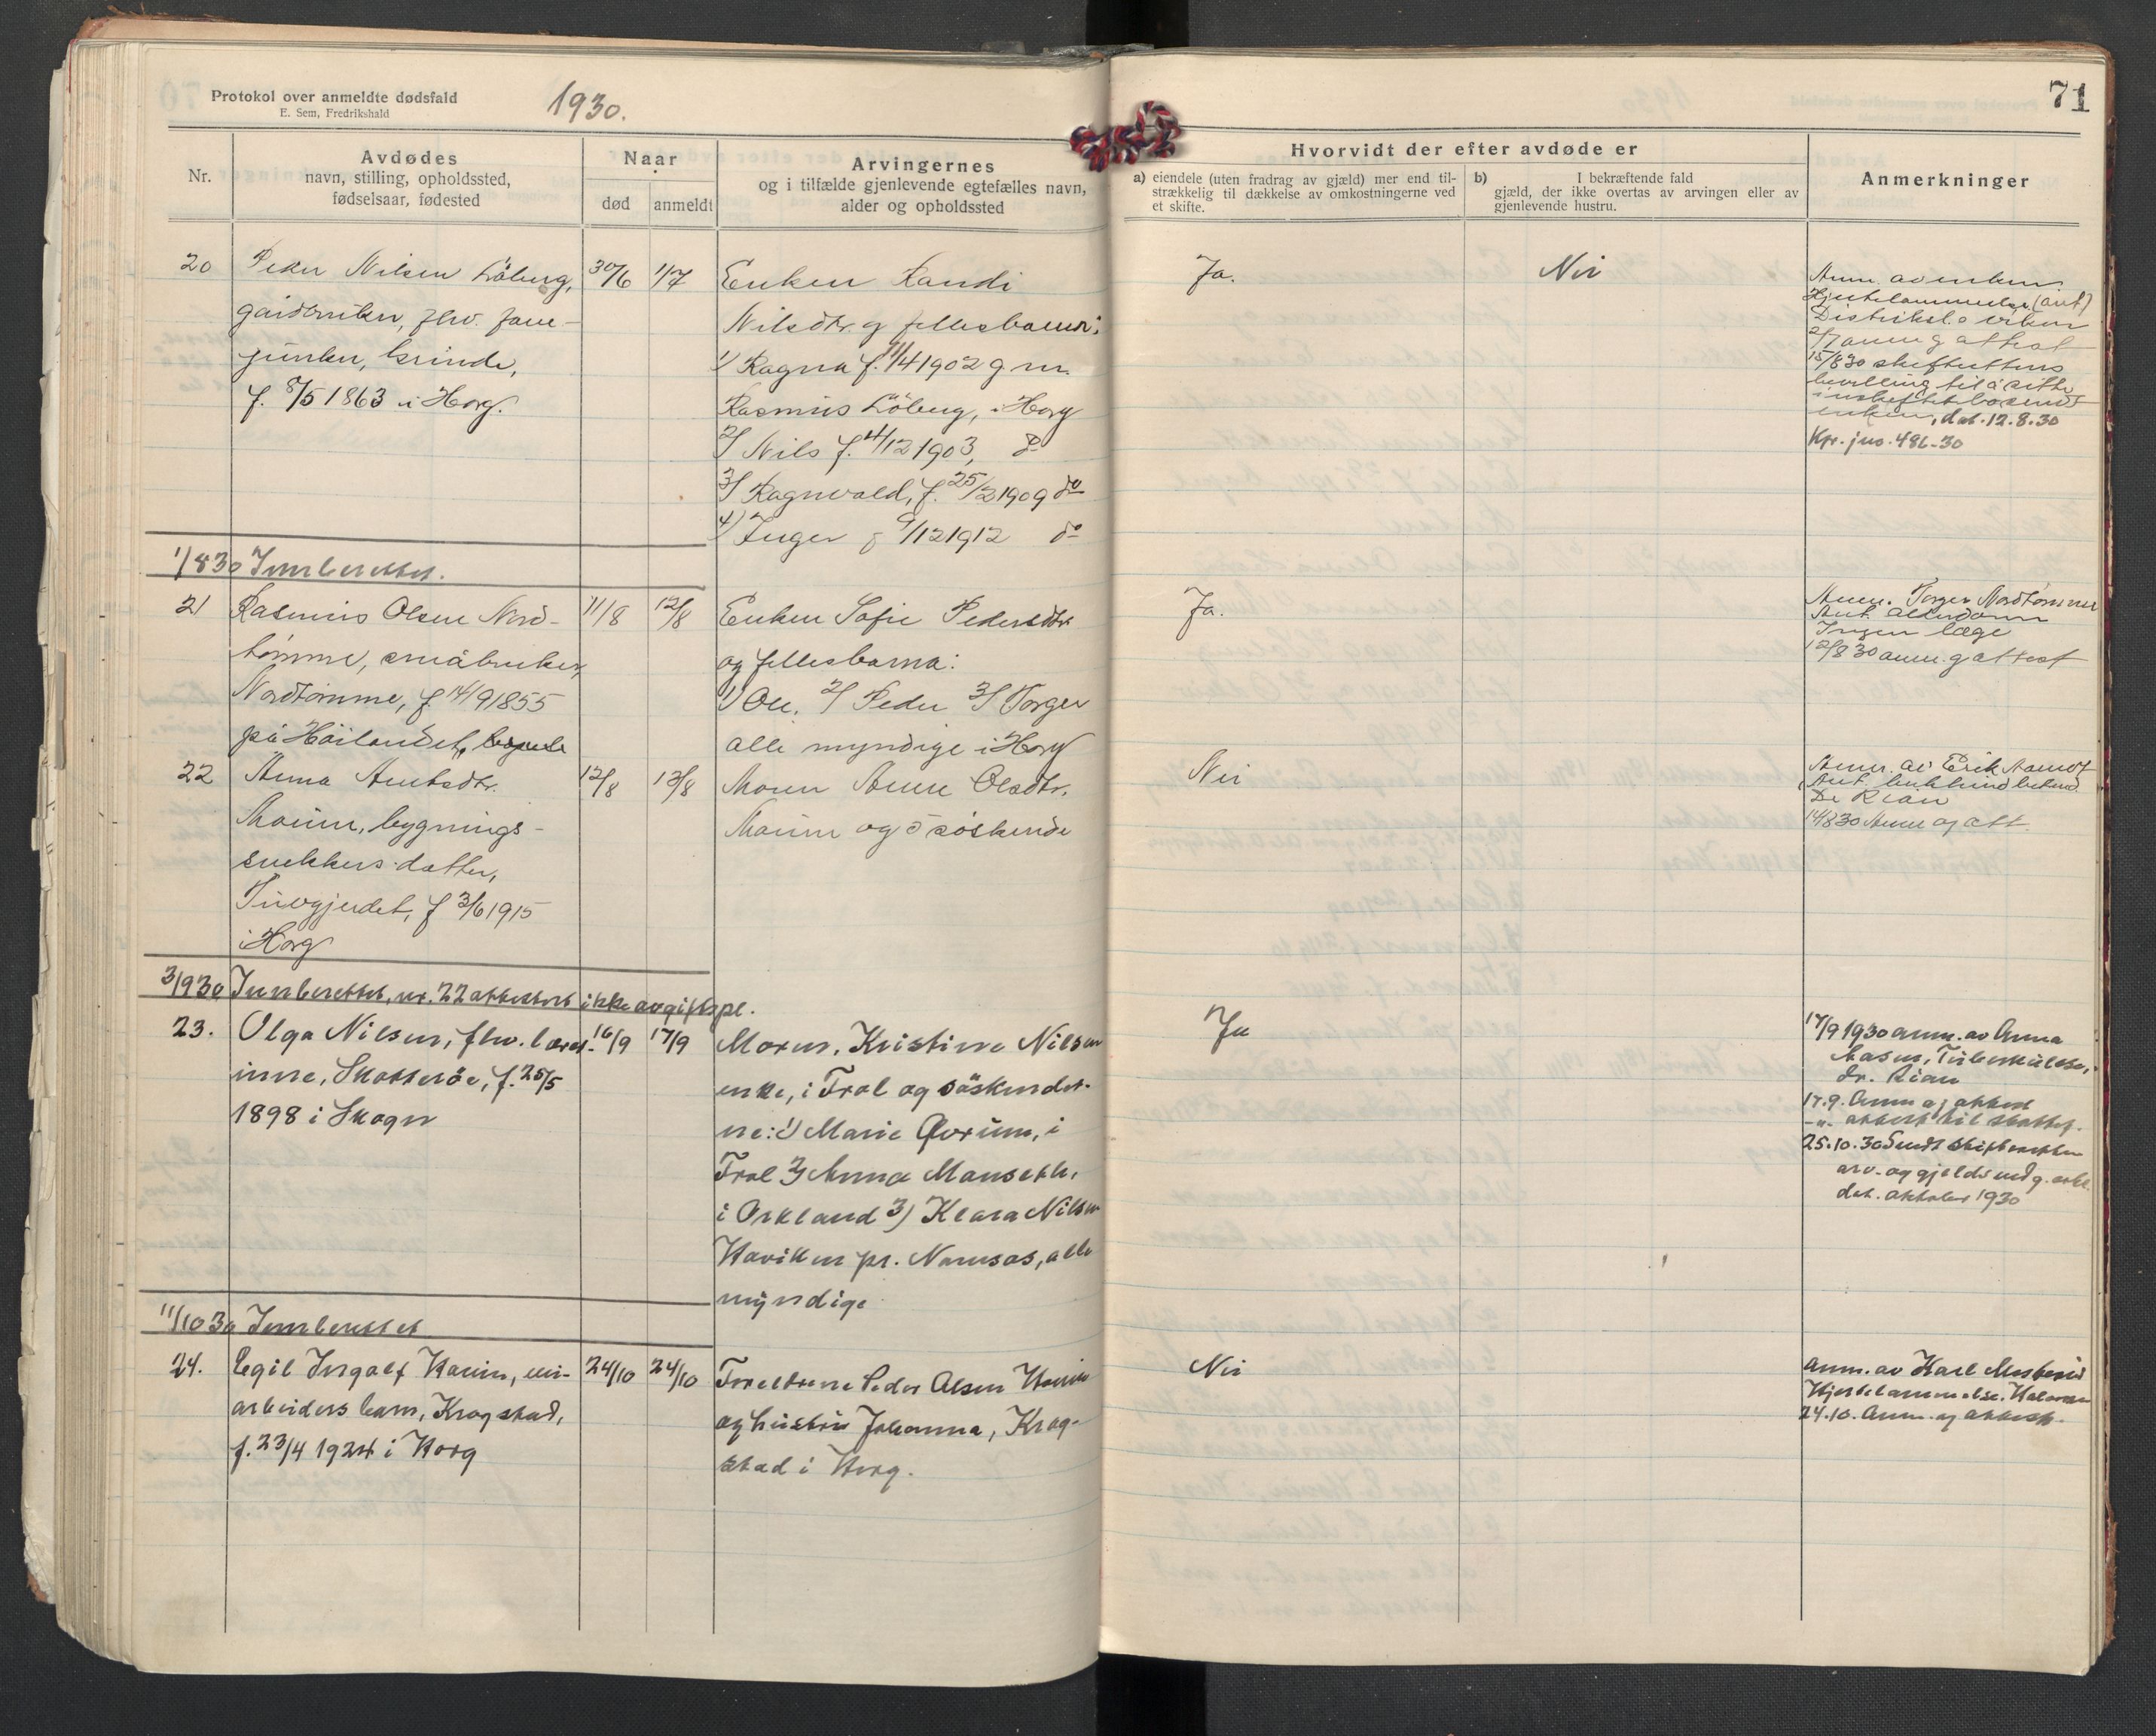 Protokol over anmeldte dødsfald
E. Sem, Fredrikshald
1930.
71
Nr.
Avdødes
navn, stilling, opholdssted,
fødselsaar, fødested
Naar
død
anmeldt
Arvingernes
og i tilfælde gjenlevende egtefælles navn,
alder og opholdssted
Hvorvidt der efter avdøde er
a) eiendele (uten fradrag av gjæld) mer end til-
strækkelig til dækkelse av omkostningerne ved
et skifte.
b) I bekræftende fald
gjæld, der ikke overtas av arvingen eller av
gjenlevende hustru.
Anmerkninger
20
Peder Nilsen Löberg,
gårdbruker, fhv.
Grinde,
f. 8/5 1863 i Horg.
30/6
1/7
Enken Randi
Nilsdtr. og fellesbarn:
1/ Ragna f. 11/4 1902 g. m.
Rasmus Löberg, i Horg
2/ Nils f. 4/12 1903, do
3/ Ragnvald, f. 25/2 1909 do
4) Inger f 9/12 1912 do
Ja.
Nei
Anm. av enken.
Hjertelammelse (ant)
2/7 anm. og attest
15/8 30 skifterettens
bevilling til å sitte
i uskiftet bo sendt
enken, dat. 12.8.30
Kpr. jno. 486-30
1/8 30 Innberettet.
21
Rasmus Olsen Nord-
tømme, småbruker,
Nordtømme, f. 14/9 1855
på Höilandet,
11/8
12/8
Enken Sofie Pedersdtr
og fellesbarna:
1/ Ole. 2/ Peder 3/ Torger
alle myndige i Horg
Ja.
Anm. Torger Nordtømme
Ant. alderdom
Ingen læge
12/8 30 anm. og attest
22
Anna Arntsdtr.
Moum, bygnings-
snekkers datter,
f 3/6 1915
i Horg
12/8
13/8
Moren Anne Olsdtr.
Moum og 5 søskende
Nei
Anm. av Erik
Dr Rian
14/8 30 Anm og att.
3/9 30 Innberettet, nr. 22 attestert ikke avgiftspl.
23.
Olga Nilsen, fhv. lærer-
inne, Skatterøe, f. 25/5
1898 i Skogn
16/9
17/9
Moren, Kristine Nilsen
enke, i Frol og söskende-
ne: 1) Marie Qvrum, i
Frol 2) Anna Mansæth,
i Orkland 3) Klara Nilsen
Haviken pr. Namsos, alle
myndige
Ja
17/9 1930 anm. av Anna
Aasen, Tuberkulose,
dr. Rian
17.9. Anm og attest
-"- attest til skattef.
25.10.30 Sendt skifteretten
arv- og gjelds vedg. erkl.
dat. oktober 1930
11/10 30 Innberettet
24.
Egil Ingolf Haum, vei-
arbeiders barn, Krogstad,
f. 23/4 1924 i Horg
24/10
24/10
Foreldrene Peder Olsen Haum
og hustru Johanna, Krog-
stad i Horg.
Nei
Anm. av Karl
Hjertelammelse.
24.10. Anm. og attest.